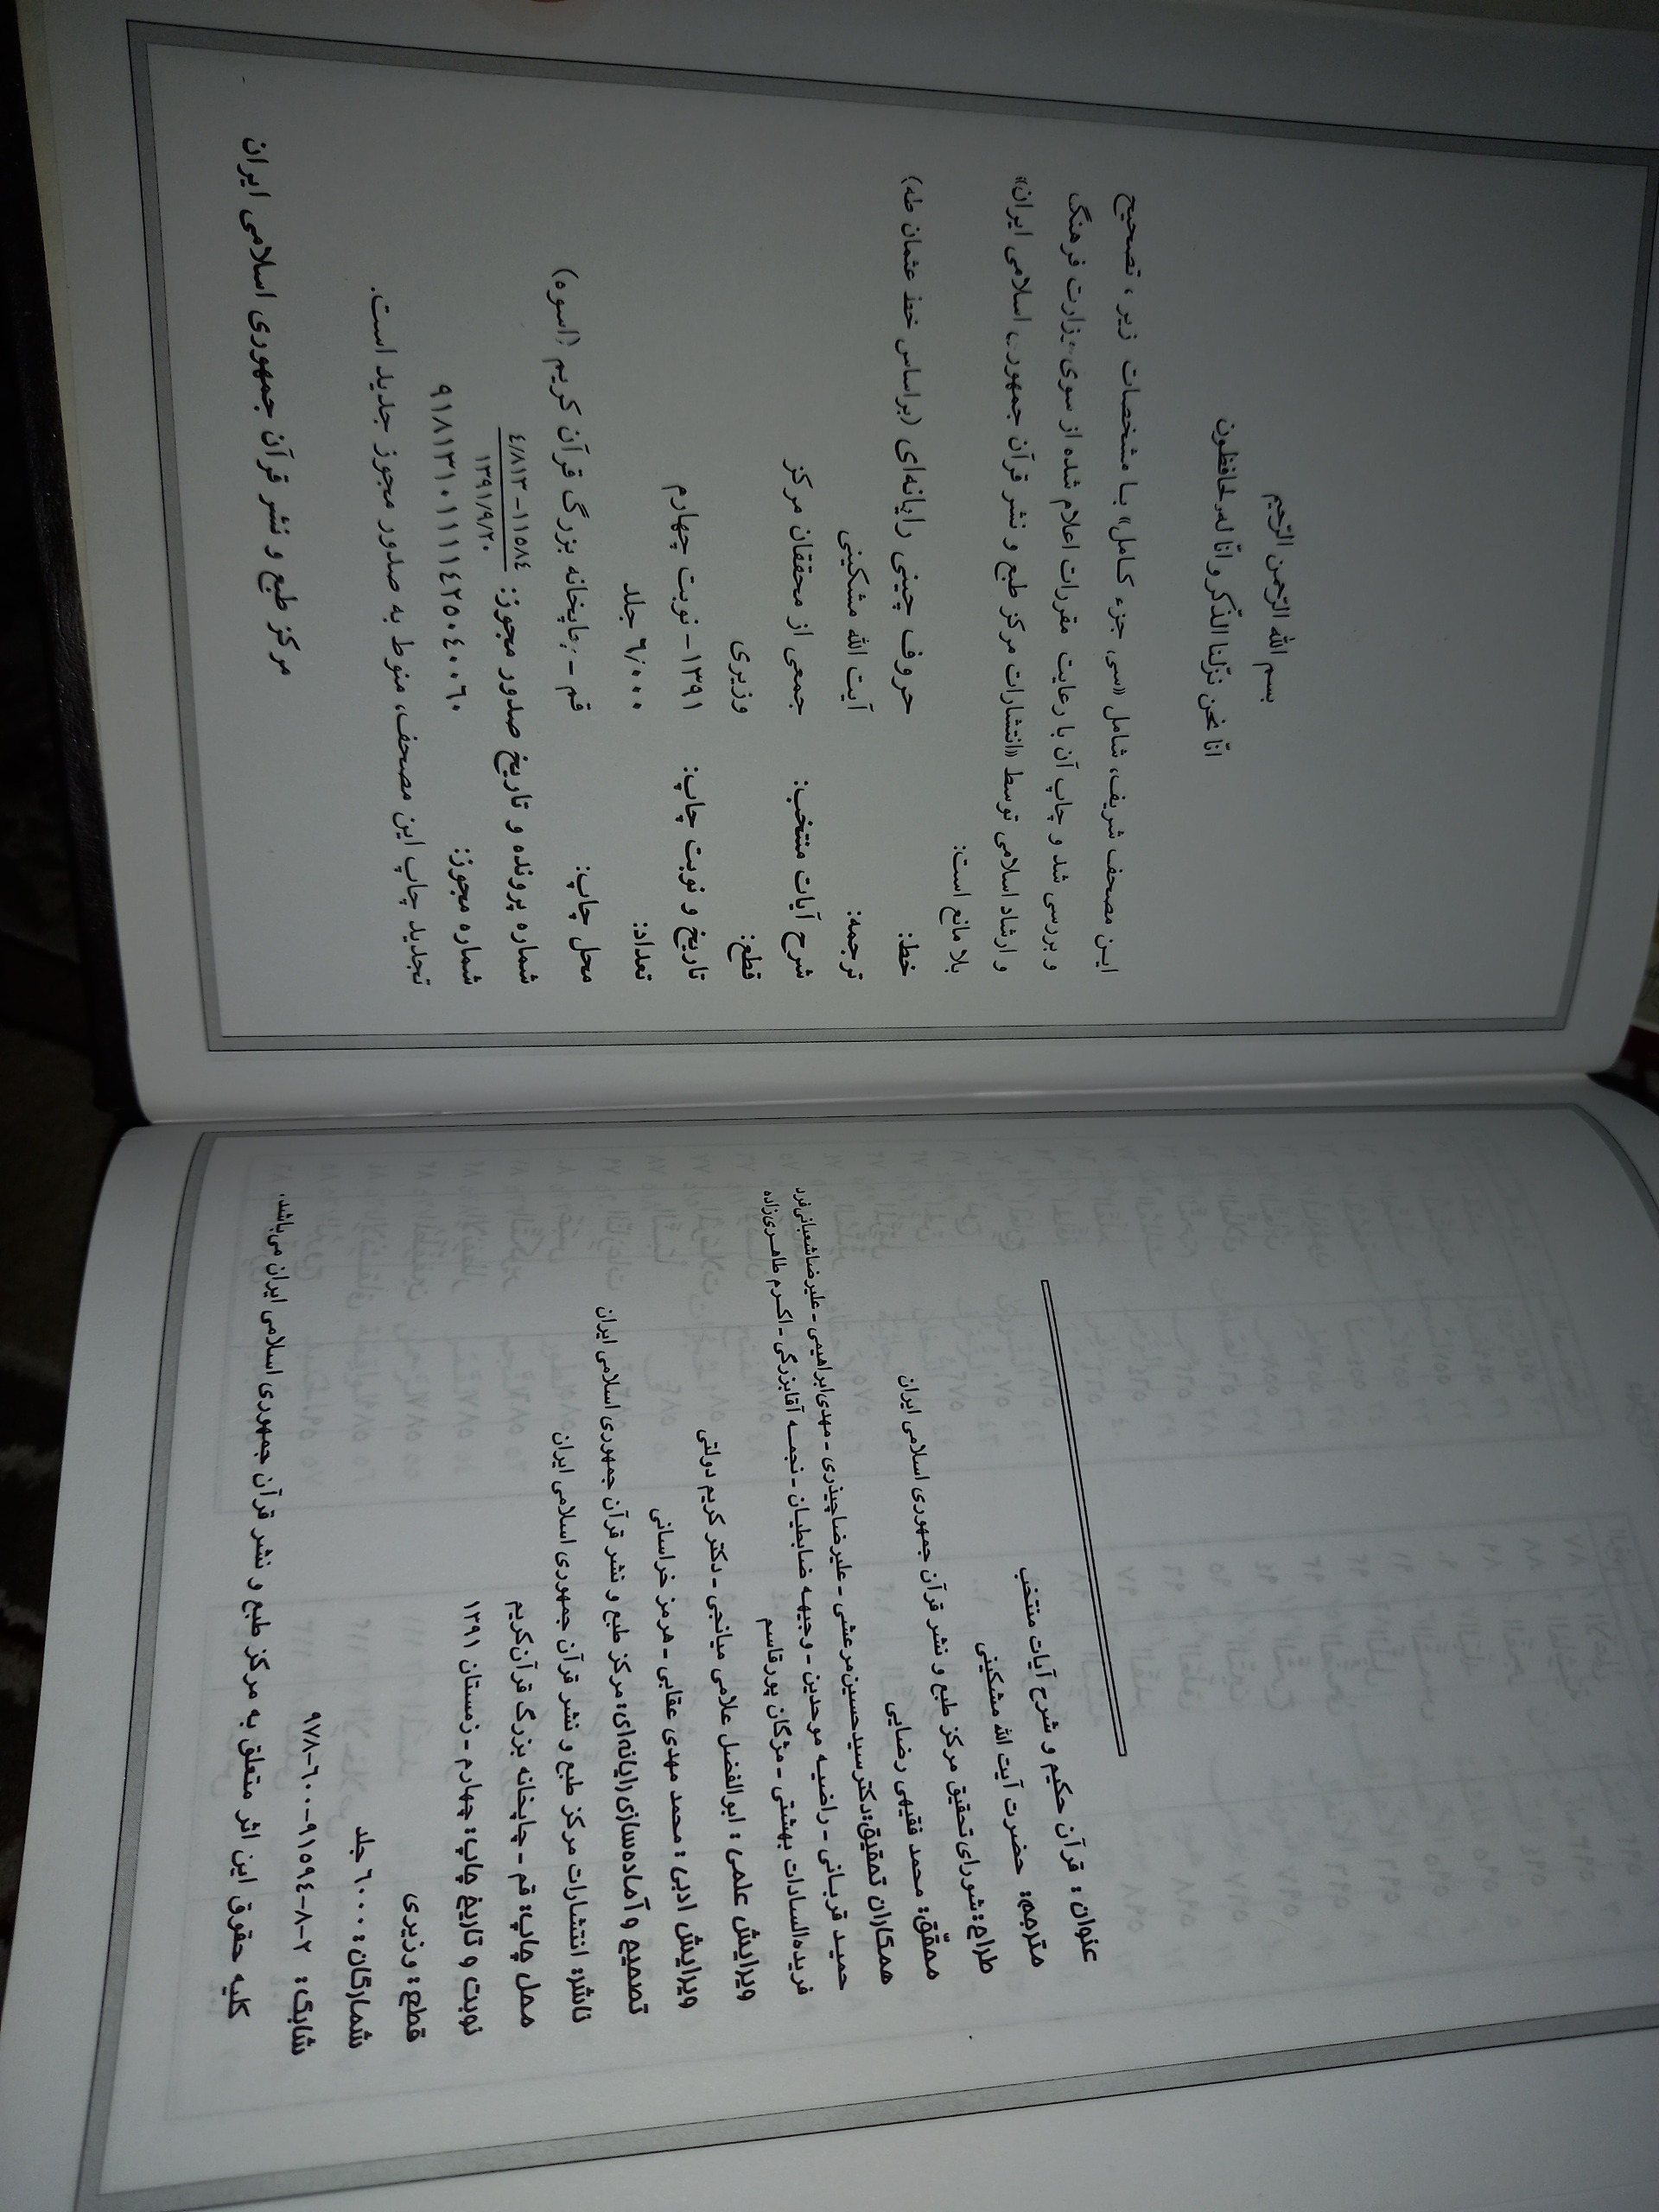 بسم الله الرّحمن الرّحیم
انّا نحن نزّلنا الذّکر و انّا له لحافظون
این مصحف شریف، شامل «سی جزء کامل» با مشخصات زیر، تصحیح
و بررسی شد و چاپ آن با رعایت مقررات اعلام شده از سوی وزارت فرهنگ
و ارشاد اسلامی توسط «انتشارات مرکز طبع و نشر قرآن جمهوری اسلامی ایران»
بلا مانع است:
خط: حروف چینی رایانه‌ای (براساس خط عثمان طه)
ترجمه: آیت الله مشکینی
شرح آیات منتخب: جمعی از محققان مرکز
قطع: وزیری
تاریخ و نوبت چاپ: ۱۳۹۱ - نوبت چهارم
تعداد: ٦/٠٠٠ جلد
محل چاپ: قم - چاپخانه بزرگ قرآن کریم (اسوه)
شماره پرونده و تاریخ صدور مجوز: ٤/٨١٣ - ١١٥٨٤
١٣٩١/٩/٢٠
شماره مجوز: ٩١٨١٣١٠١١١١٤٢٥٠٤٠٠٦٠
تجدید چاپ این مصحف، منوط به صدور مجوز جدید است.
مرکز طبع و نشر قرآن جمهوری اسلامی ایران
عنوان: قرآن حکیم و شرح آیات منتخب
مترجم: حضرت آیت الله مشکینی
طراح: شورای تحقیق مرکز طبع و نشر قرآن جمهوری اسلامی ایران
محقّق: محمد فقیهی رضایی
همکاران تحقیق: دکتر سیدحسین مرعشی - علیرضا چیذری - مهدی ابراهیمی - علیرضا شعبانی فرد
حمید قربانی - راضیه موحدین - وجیهه ضابطیان - نجمه آقابزرگی - اکرم طاهری‌زاده
فریده‌السادات بهشتی - مژگان پورقاسم
ویرایش علمی: ابوالفضل علامی میانجی - دکتر کریم دولتی
ویرایش ادبی: محمد مهدی عقابی - هرمز خراسانی
تصحیح و آماده‌سازی رایانه‌ای: مرکز طبع و نشر قرآن جمهوری اسلامی ایران
ناشر: انتشارات مرکز طبع و نشر قرآن جمهوری اسلامی ایران
محل چاپ: قم - چاپخانه بزرگ قرآن کریم
نوبت و تاریخ چاپ: چهارم - زمستان ۱۳۹۱
قطع: وزیری
شمارگان: ٦٠٠٠ جلد
شابک: ٩٧٨-٦٠٠-٩١٥٩٤-٨-٢
کلیه حقوق این اثر متعلق به مرکز طبع و نشر قرآن جمهوری اسلامی ایران می‌باشد.